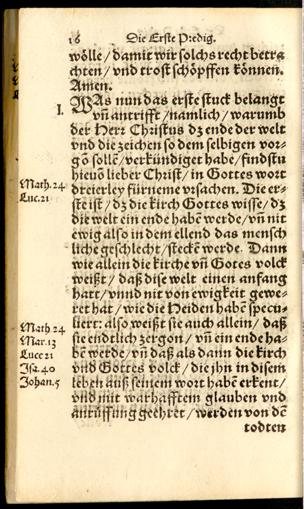 16 Die Erste Predig.
wölle/ damit wir solchs recht betra
chten/ vnd trost schöpffen können.
Amen.
I. WAs nun das erste stuck belangt
vñ antrifft/ nämlich/ warumb
der Herr Christus dz ende der welt
vnd die zeichen so dem selbigen vor-
gō sollē/ verkündiget habe/ findstu
hieuō lieber Christ/ in Gottes wort
Math. 24 dreierley fürneme vrsachen. Die er-
Luc. 21 ste ist/ dz die kirch Gottes wisse/ dz
die welt ein ende habē werde/ vñ nit
ewig also in dem ellend das mensch
liche geschlecht/ steckē werde. Dann
wie allein die kirche vñ Gotes volck
weißt/ daß dise welt einen anfang
hatt/ vnnd nit von ewigkeit gewe-
ret hat/ wie die Heiden habē specu-
Math 24 liert: also weißt sie auch allein/ daß
Mar. 13 sie endtlich zergon/ vñ ein ende ha-
Luce 21 bē werde/ vñ daß als dann die kirch
Isa. 40 vnd Gottes volck/ die jhn in disem
Johan. 5 leben auß seinem wort habē erkent/
vnd mit warhafftem glauben vnd
anrüffung geehret/ werden von dē
todten